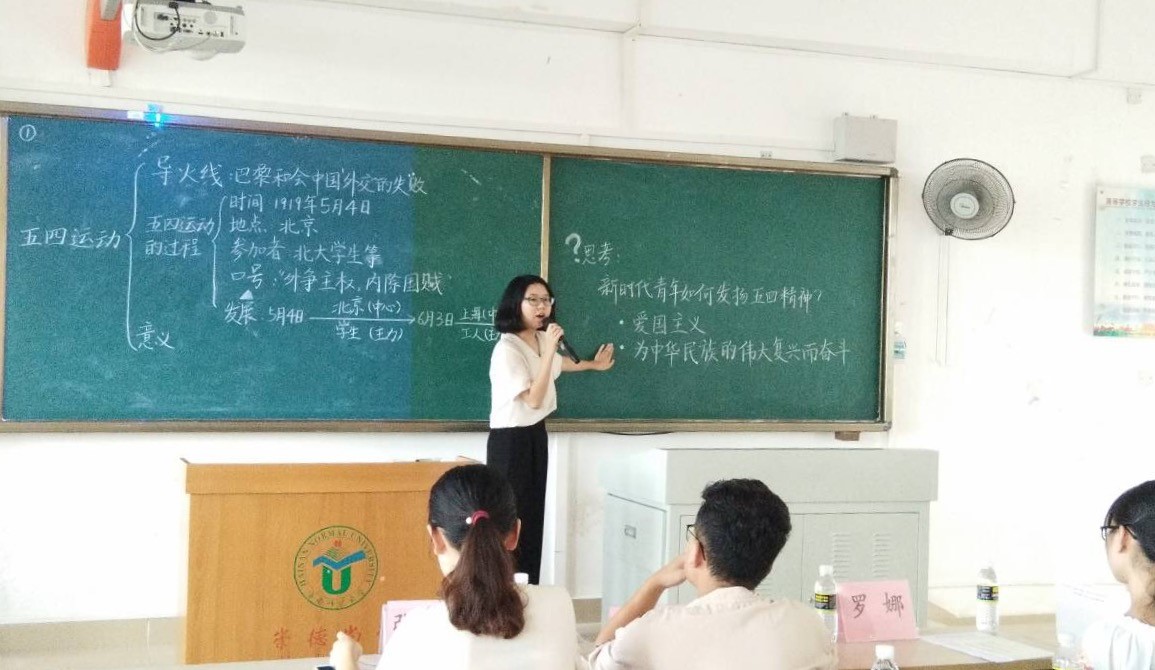 ①
五四运动
导火线:巴黎和会中国外交的失败
五四运动
的过程
时间 1919年5月4日
地点 北京
参加者 北大学生等
口号:"外争主权,内除国贼"
发展 5月4日 北京(中心) 学生(主力) 6月3日 上海 工人
意义
?思考:
新时代青年如何发扬五四精神?
·爱国主义
·为中华民族的伟大复兴而奋斗
HAINAN NORMAL UNIVERSITY
崇德尚
罗娜